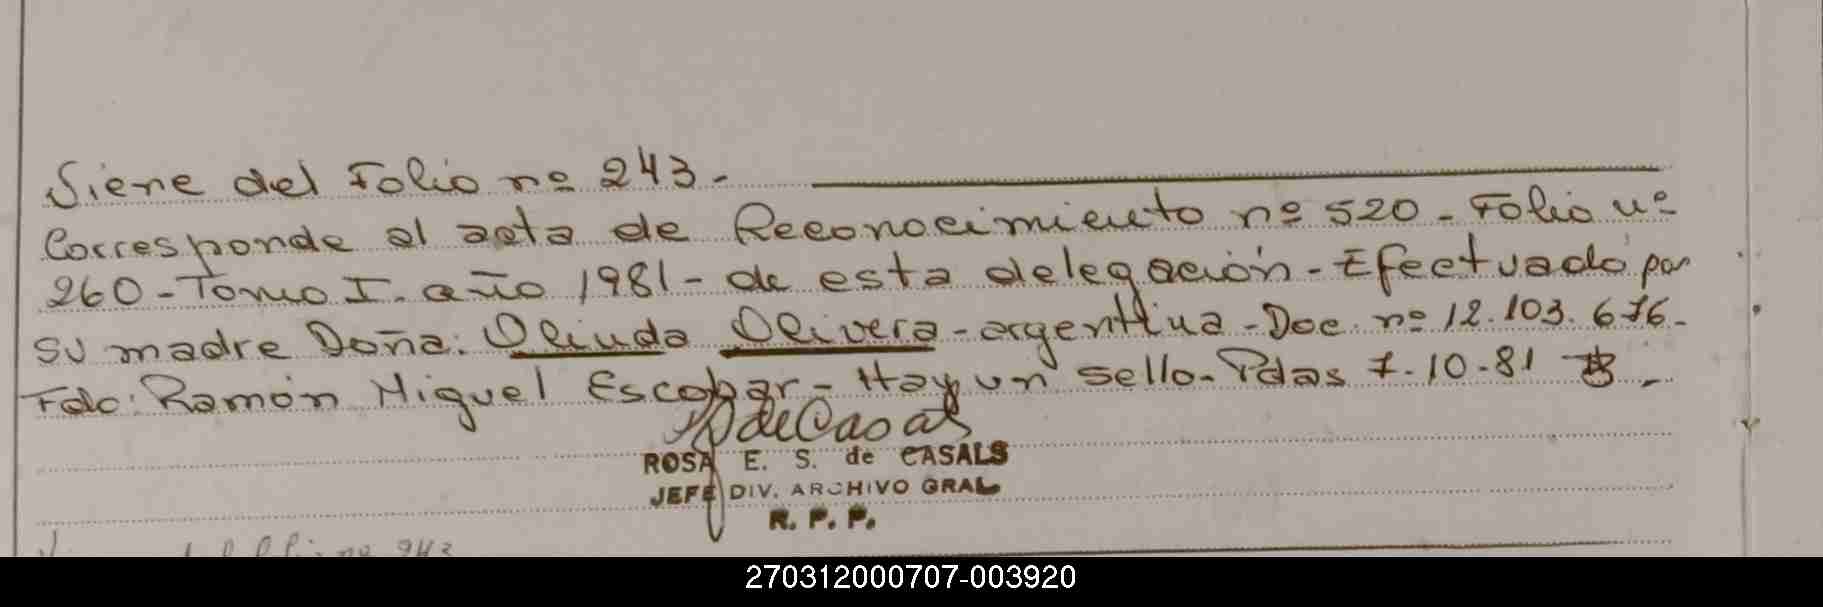 Viene del Folio nº 243.-
Corresponde al acta de Reconocimiento nº 520 - Folio nº
260 - Tomo I. año 1981 - de esta delegación - Efectuado por
su madre Doña: Olinda Olivera - argentina - Doc. nº 12.103.676.-
Fdo: Ramón Miguel Escobar - Hay un sello. Pdas 7-10-81
de Casals
ROSA E. S. de CASALS
JEFE DIV. ARCHIVO GRAL
R. P. P.
nº 243
270312000707-003920